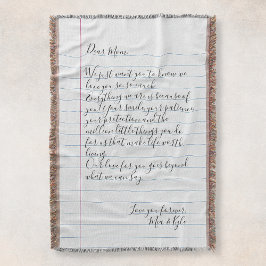 Dear Mom,
We just want you to know we
love you so so much.
Everything we are is because of
you. Your smile, your patience,
your protection and the
million little things you do
for us that make life worth
living.
Our love for you goes beyond
what we can say.
Love you forever,
Mia & Kyle